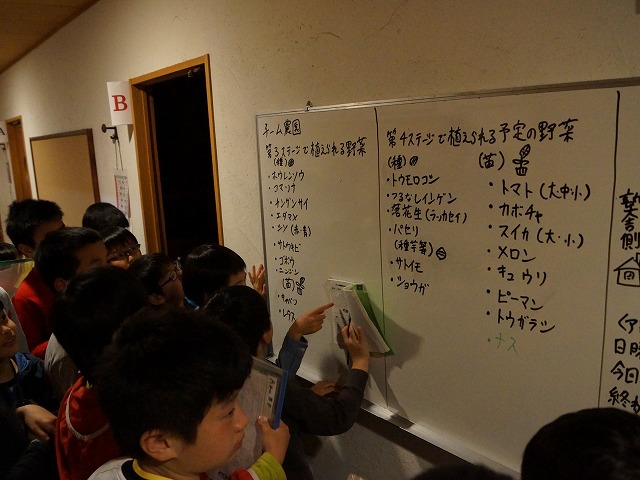 B
チーム農園
第3ステージで植えられる野菜
(種)
・ホウレンソウ
・コマツナ
・チンゲンサイ
・エダマメ
・シソ(赤・青)
・ゴボウ
・ニンジン
(苗)
・キャベツ
・レタス
第4ステージで植えられる予定の野菜
(種)
・トウモロコシ
・つるなしインゲン
・落花生(ラッカセイ)
・パセリ
(種芋等)
・サトイモ
・ショウガ
(苗)
・トマト(大中小)
・カボチャ
・スイカ(大・小)
・メロン
・キュウリ
・ピーマン
・トウガラシ
・ナス
塾舎側
今日
終わ